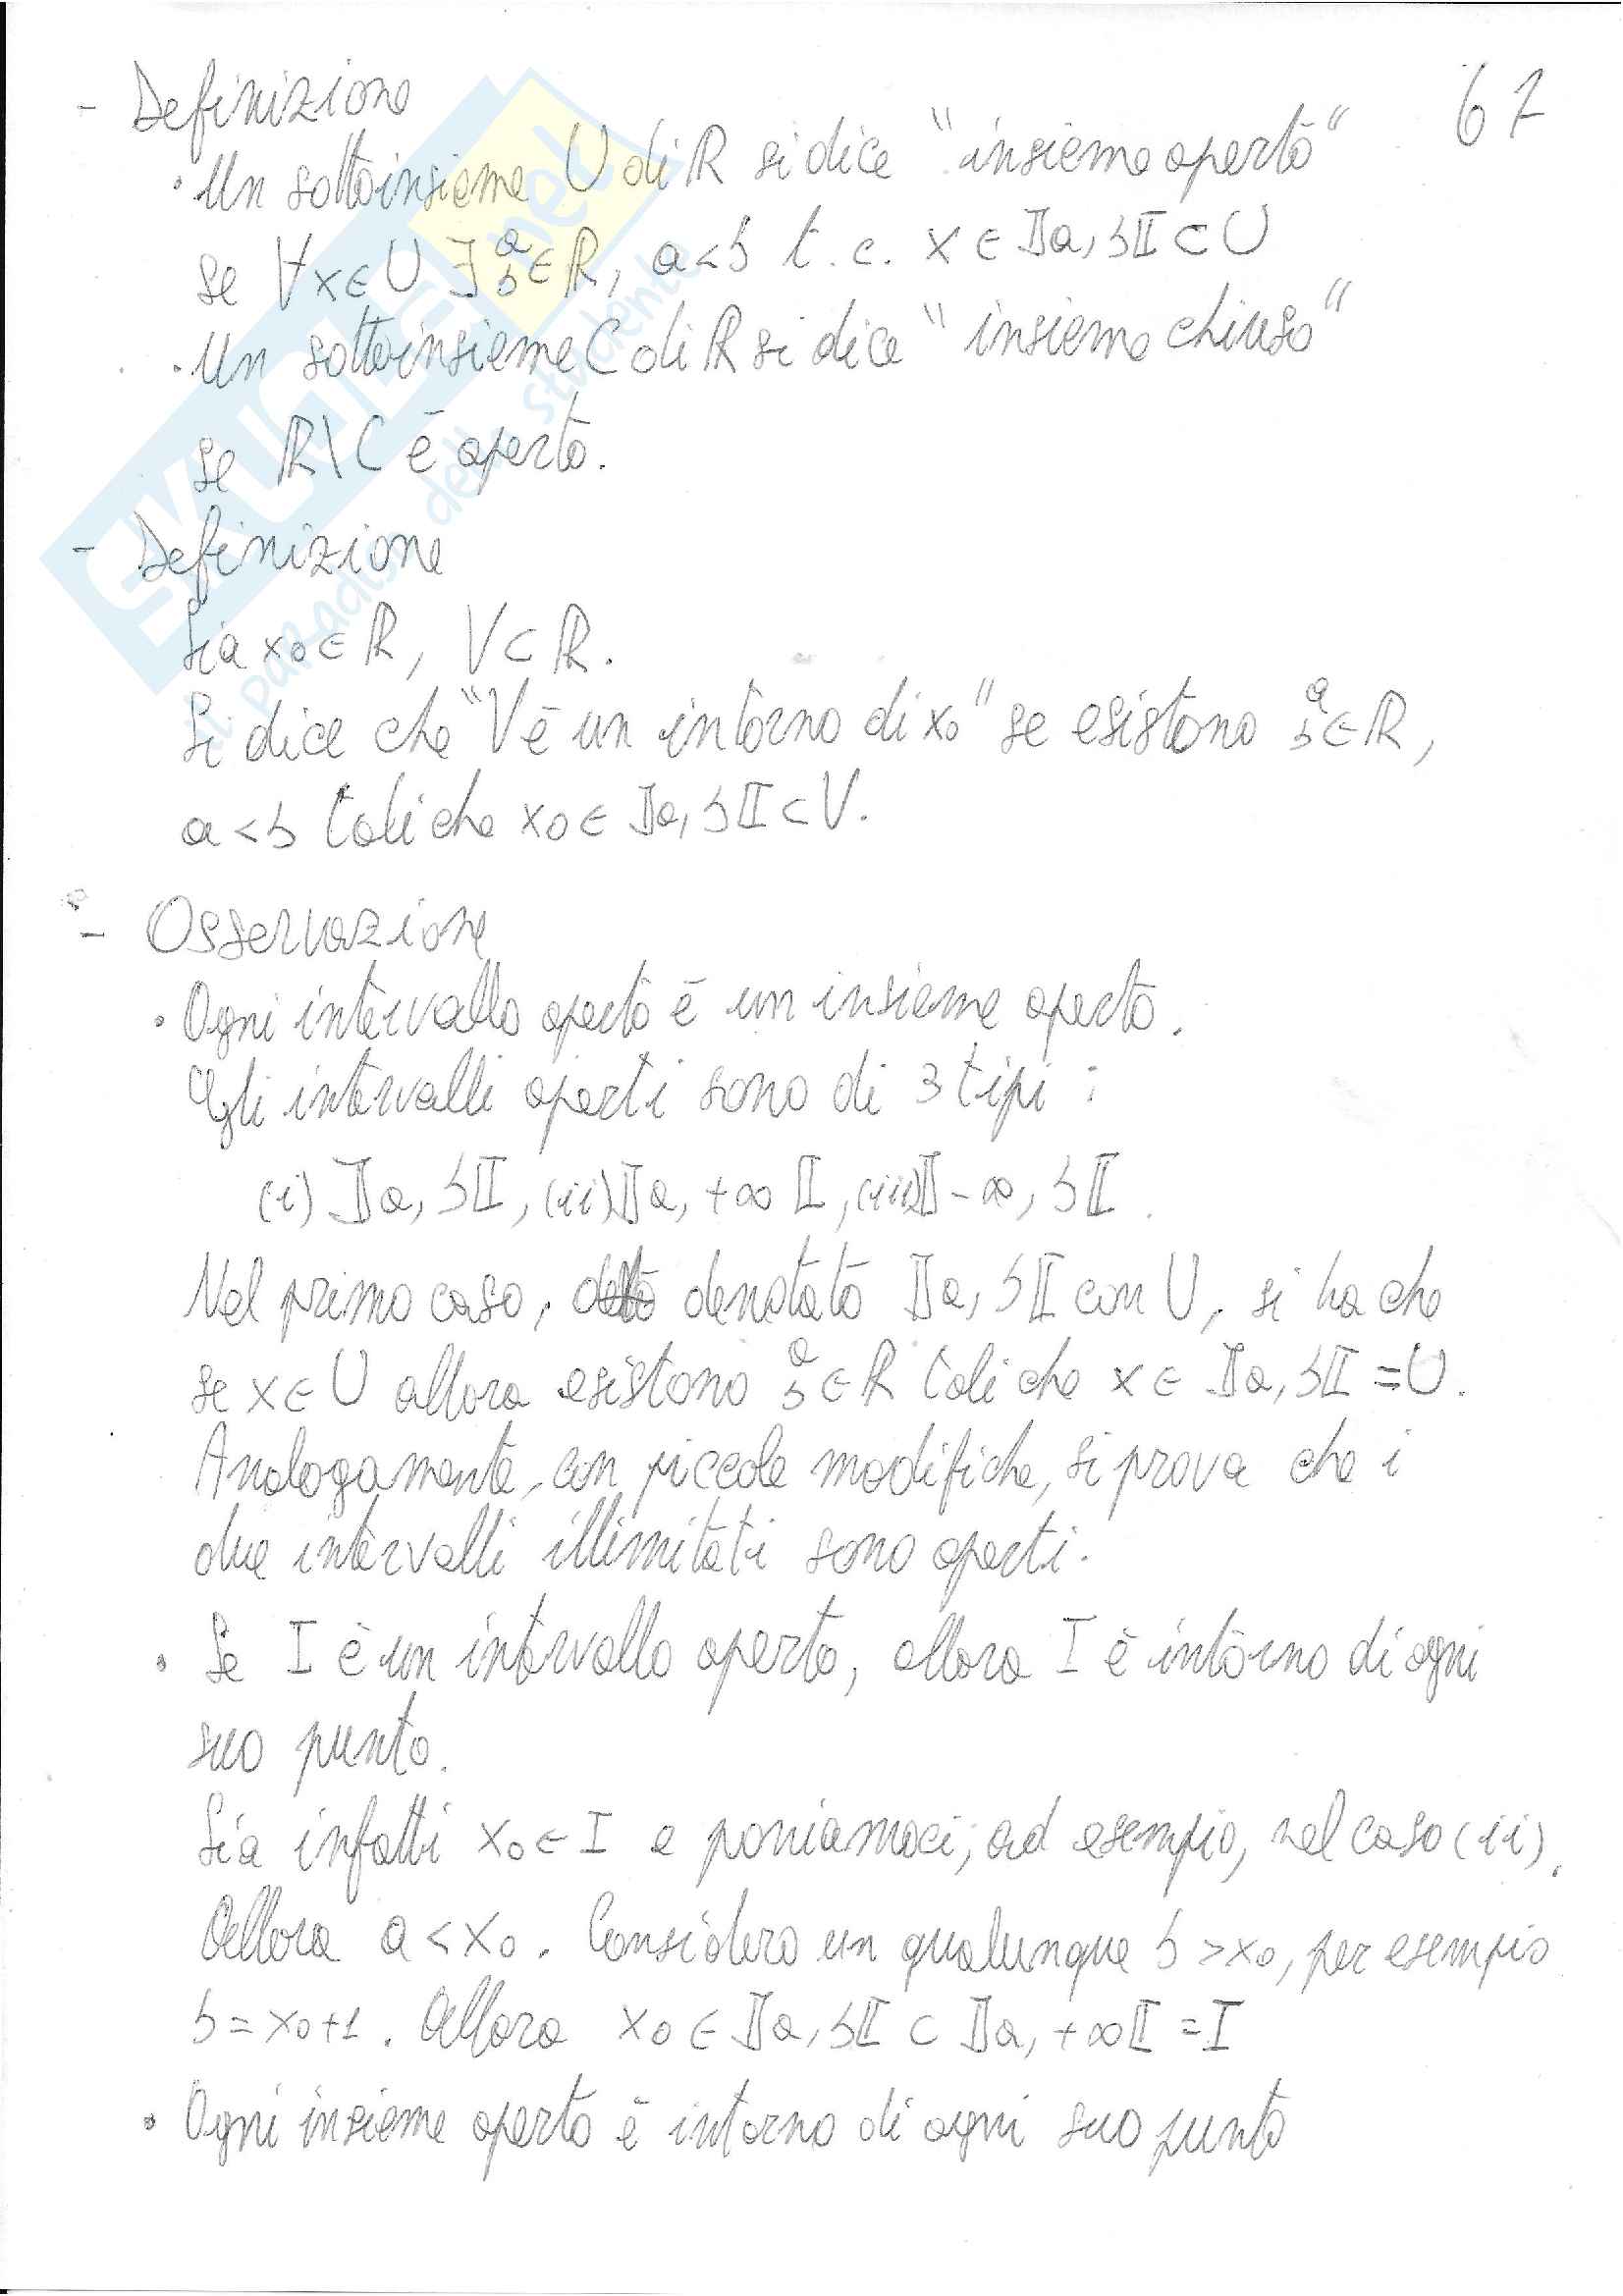 67
- Definizione
• Un sottoinsieme U di ℝ si dice "insieme aperto"
se ∀x∈U ∃ a b ∈ℝ, a<b t.c. x∈⟧a,b⟦⊂U
• Un sottoinsieme C di ℝ si dice "insieme chiuso"
se ℝ\C è aperto.
- Definizione
Sia x₀∈ℝ, V⊂ℝ.
Si dice che "V è un intorno di x₀" se esistono a b ∈ℝ,
a<b tali che x₀∈⟧a,b⟦⊂V.
- Osservazione
• Ogni intervallo aperto è un insieme aperto.
Gli intervalli aperti sono di 3 tipi:
(i) ⟧a,b⟦, (ii) ⟧a,+∞⟦, (iii) ⟧-∞,b⟦.
Nel primo caso, denotato ⟧a,b⟦ con U, si ha che
se x∈U allora esistono a b ∈ℝ tali che x∈⟧a,b⟦=U.
Analogamente, con piccole modifiche, si prova che i
due intervalli illimitati sono aperti.
• Se I è un intervallo aperto, allora I è intorno di ogni
suo punto.
Sia infatti x₀∈I e poniamoci, ad esempio, nel caso (ii).
Allora a<x₀. Considero un qualunque b>x₀, per esempio
b=x₀+1. Allora x₀∈⟧a,b⟦⊂⟧a,+∞⟦=I
• Ogni insieme aperto è intorno di ogni suo punto
SKUOLA.net
il paradiso dello studente